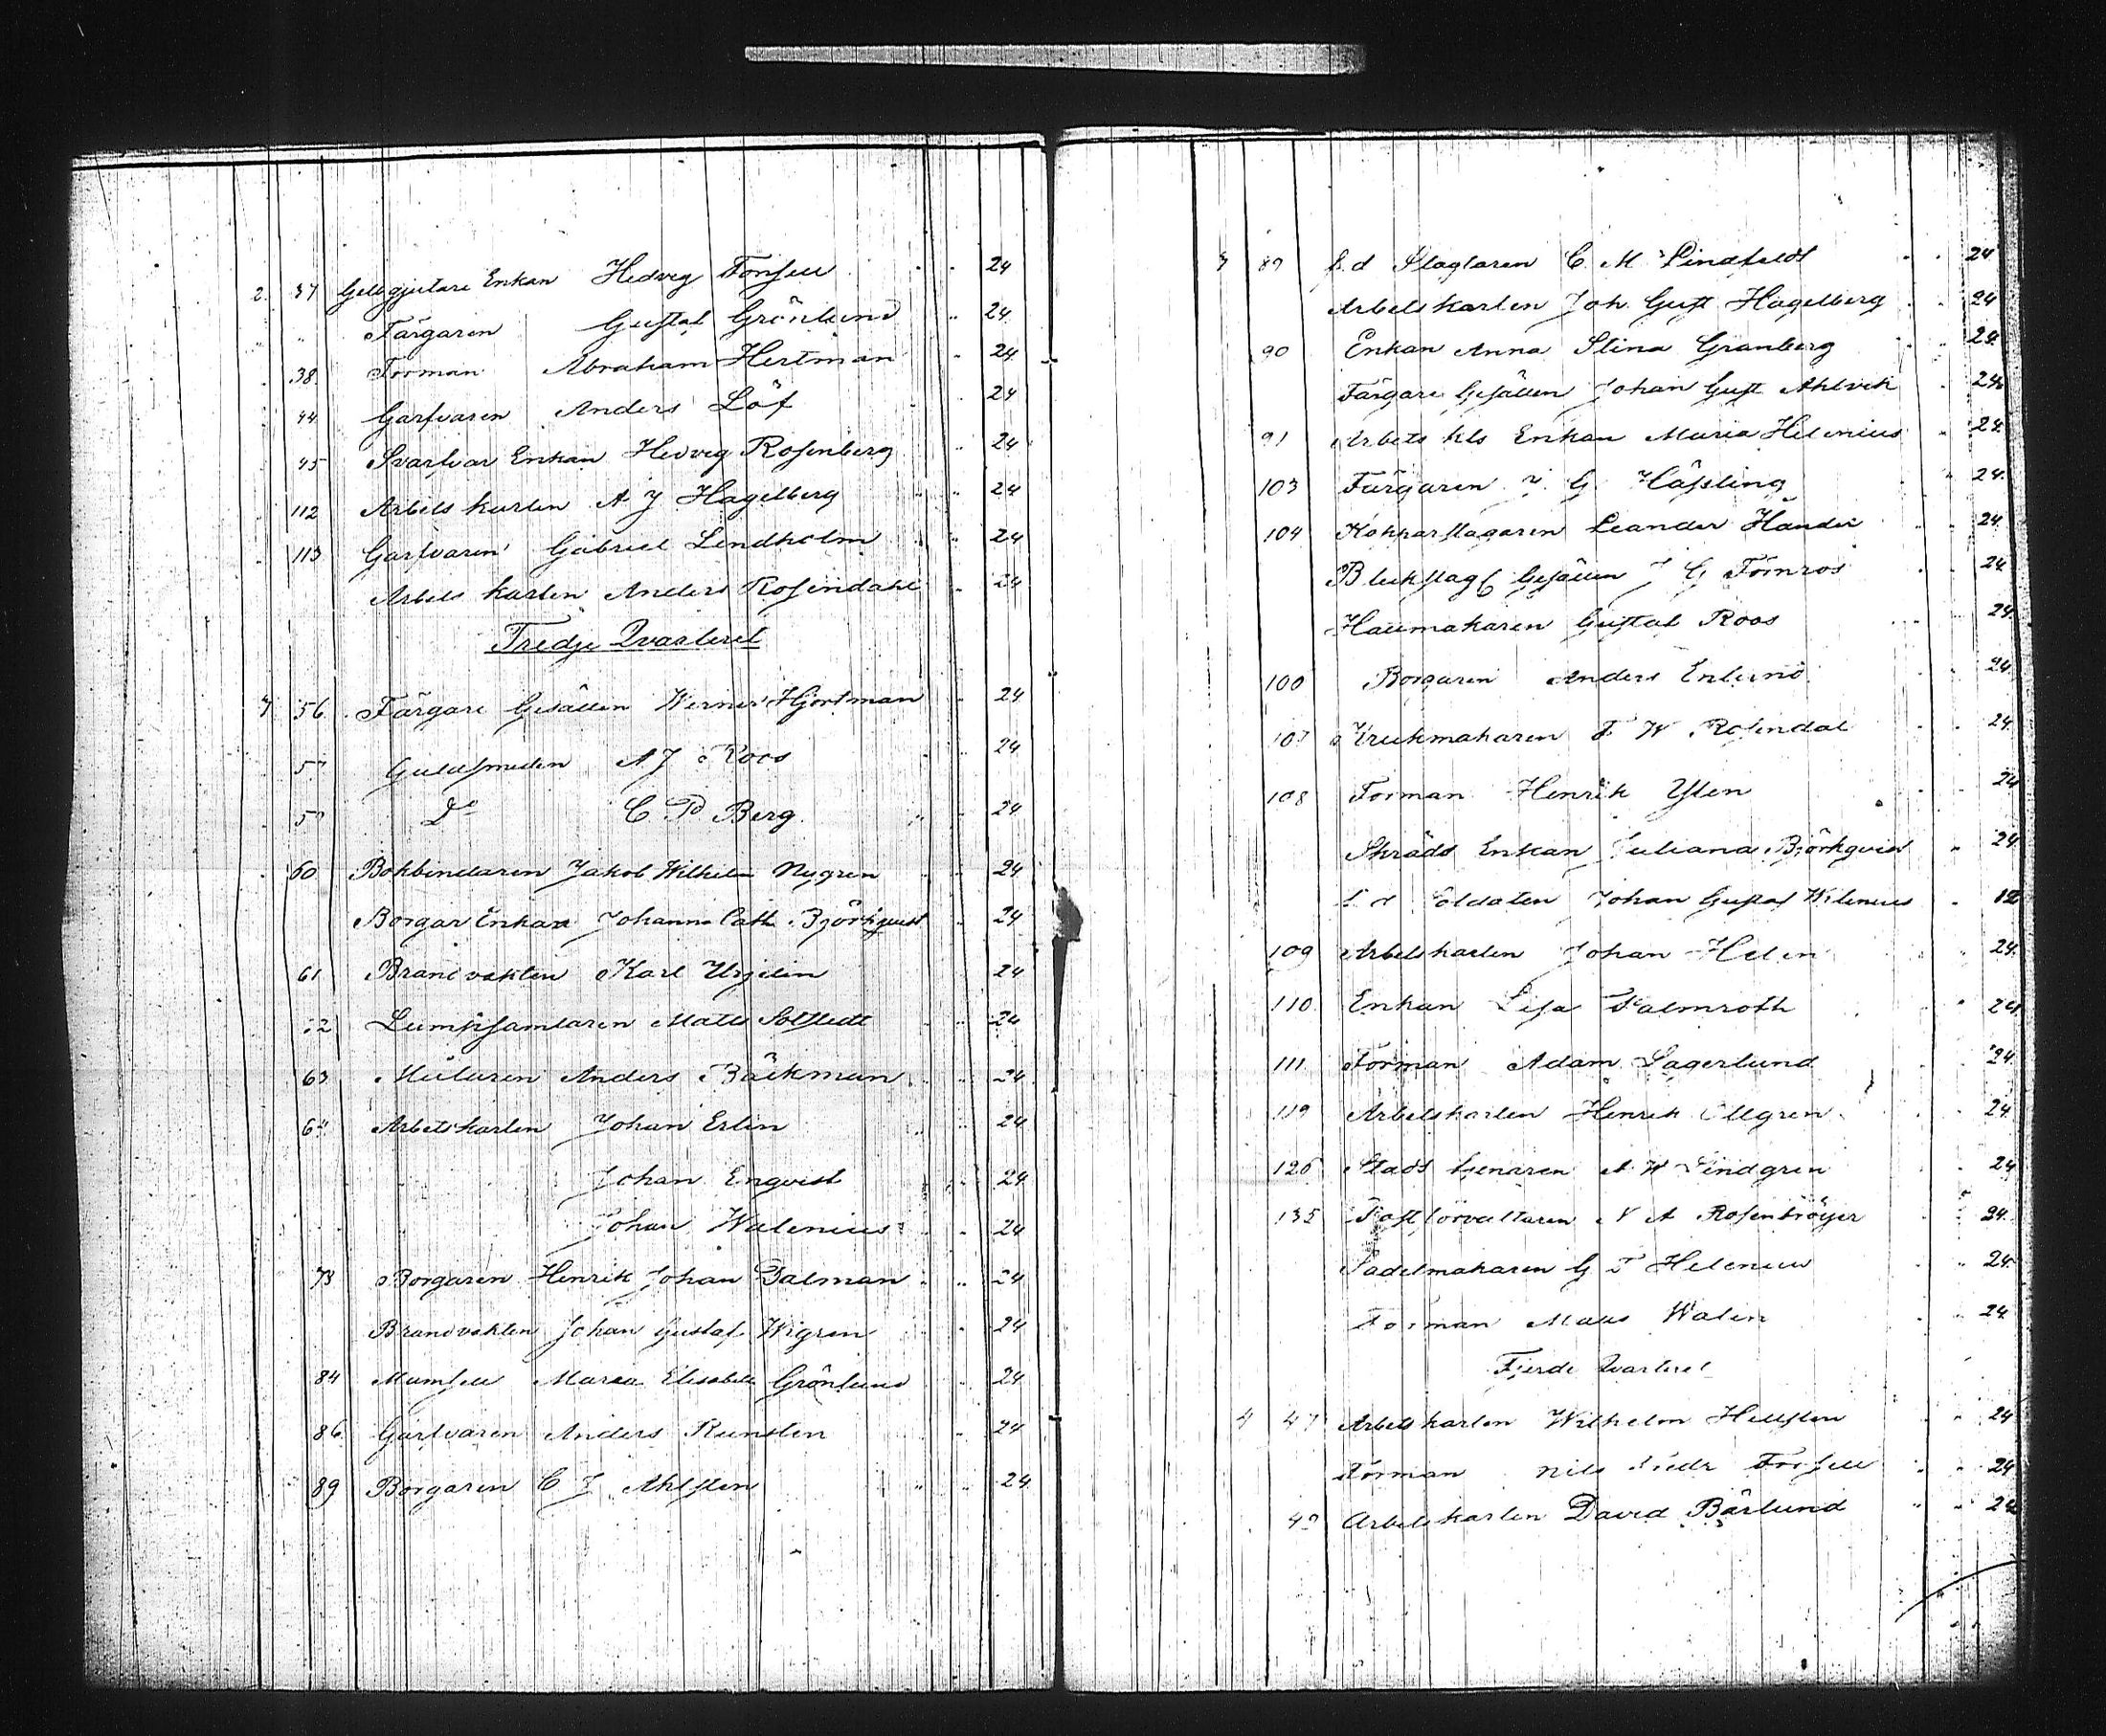 2. 37 Gelbgjutare Enkan Hedvig Forsell 24
Färgaren Gustaf Grönlund 24
38. Forman Abraham Hertman 24
44 Garfvaren Anders Löf 24
45 Svarfvar Enkan Hedvig Rosenberg 24
112 Arbets karlen A J Hagelberg 24
113 Garfvaren Gabriel Lindholm 24
Arbets karlen Anders Rosendahl 24
Tredje Qvarteret
56 Färgare Gesällen Werner Hjortman 24
Guldsmeden A J Roos 24
Do C P Berg. 24
60 Bokbindaren Jakob Wilhelm Nygren 24
Borgar Enkan Johanna Cath Björkqvist 24
61 Brandvakten Karl 24
Lumpsamlaren Matts Solstedt 24
63 Målaren Anders Bäckman 24
Arbetskarlen Johan Erlin 24
Johan Enqvist 24
Johan Walenius 24
73 Borgaren Henrik Johan Dalman 24
Brandvakten Johan Gustaf Wigren 24
84 Mamsell Maria Elisabeth Grönlund 24
86 Garfvaren Anders Runsten 24
89 Borgaren C J Ahlsten 24
89 f.d Slagtaren C. M. Lindfeldt 24
Arbetskarlen Joh. Gust Hagelberg 24
90 Enkan Anna Stina Granberg 24
Färgare Gesällen Johan Gust Ahlvik 24
91 Arbets kls Enkan Maria Helenius 24
103 Färgaren J. G. Hässling 24
104 Kopparslagaren Leander Hander 24
Bleckslag Gesällen J G Törnros 24
Gustaf Roos 24
100 Borgaren Anders Enlund 24
107 Krukmakaren F W Rosendal 24
108 Forman Henrik Ysten 24
Skrädd Enkan Juliana Björkqvist 24
f d Soldaten Johan Gustaf Wilenius 12
109 Arbetskarlen Johan Helin 24
110 Enkan Lisa Palmroth 24
111 Forman Adam Lagerlund 24
119 Arbetskarlen Henrik Ollgren 24
126 Stads tjenaren A W Lindgren 24
135 Postförvaltaren N A Rosenbröijer 24
Sadelmakaren G F Helenius 24
Forman Matts Walen 24
Fjerde Qvarteret
4 47 Arbetskarlen Wilhelm Hellsten 24
Forman Nils Fredr Forsell 24
Arbetskarlen David Bärlund 24